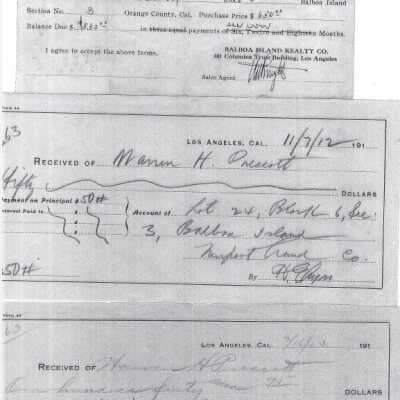 Balboa Island
Section No. 3 Orange County, Cal. Purchase Price $
Balance Due $ in three equal payments of Six, Twelve and Eighteen Months.
I agree to accept the above terms.
BALBOA ISLAND REALTY CO.
Building, Los Angeles
Sales Agent
63
LOS ANGELES, CAL. 11/7/12 191
RECEIVED OF Warren H. Prescott
fifty DOLLARS
Payment on Principal $ 50 #
Interest Paid to $ Account of Lot 24, Block 6, Sec.
$ 3, Balboa Island
$ Newport Land Co.
50 # By
63
LOS ANGELES, CAL. 191
RECEIVED OF Prescott
One hundred fifty DOLLARS